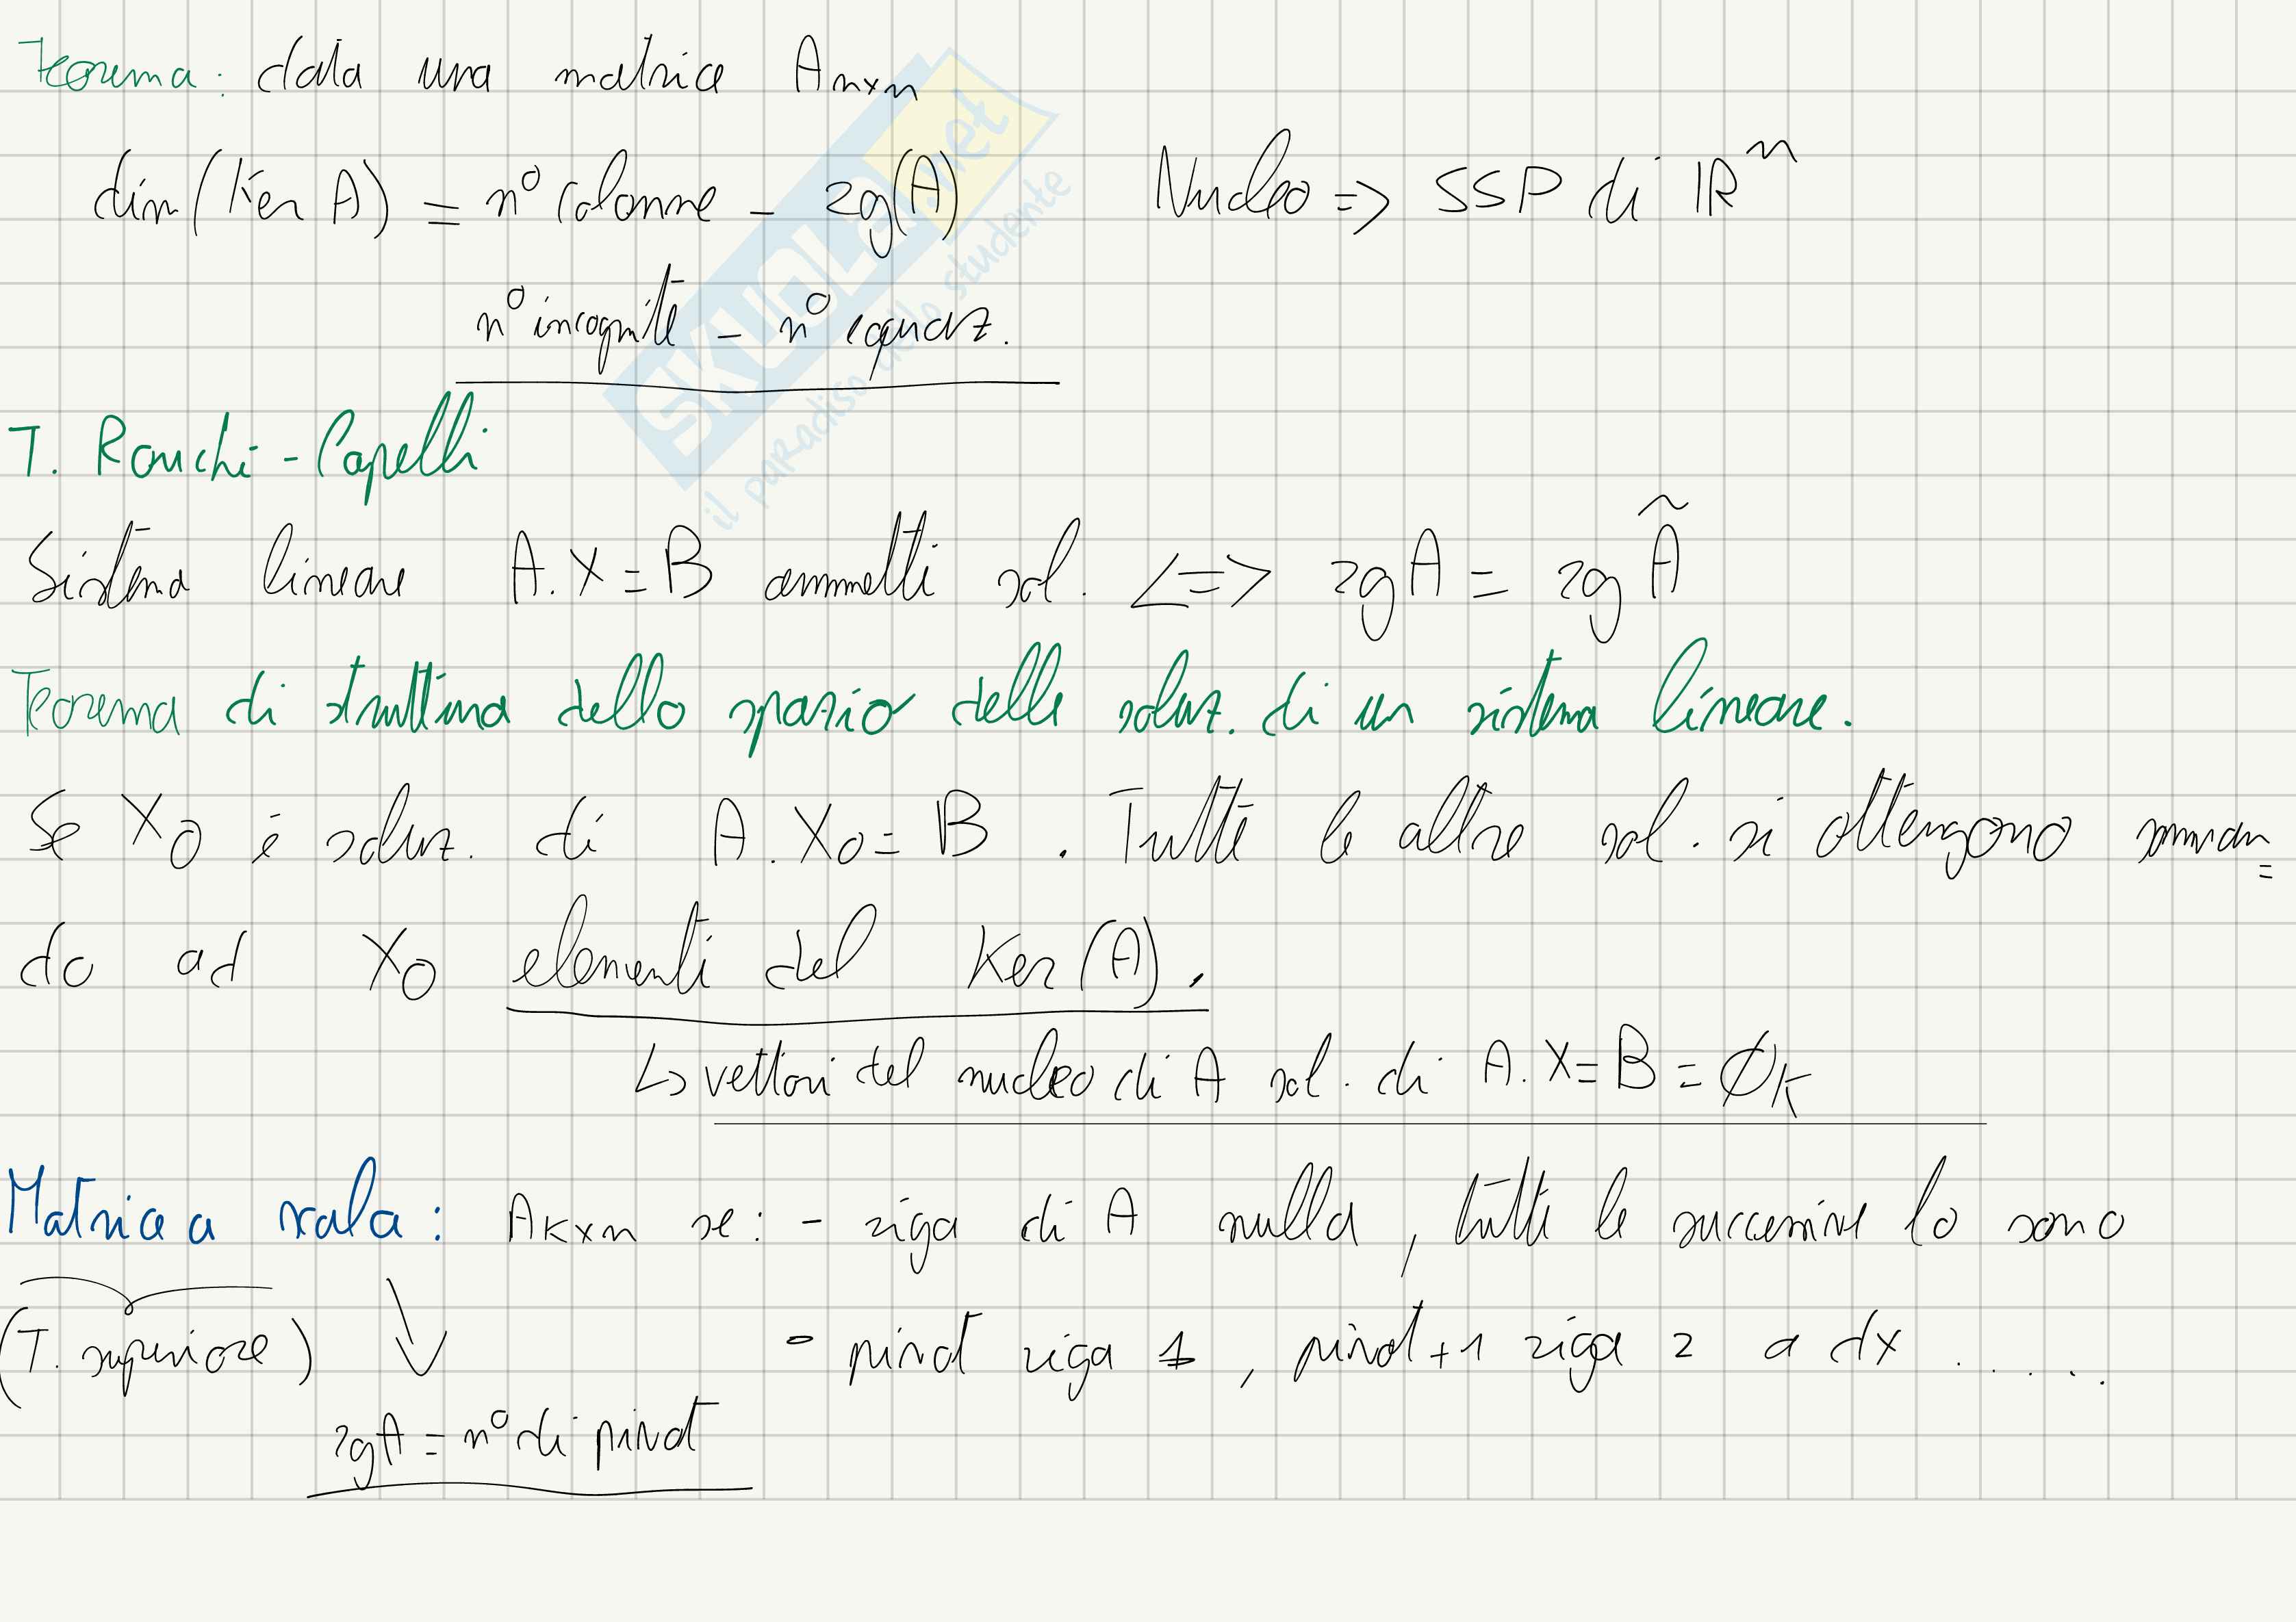 Teorema: data una matrice A n×n
dim(Ker A) = n° colonne - rg(A) Nucleo => SSP di ℝⁿ
n° incognite - n° equaz.
T. Rouchi-Capelli
Sistema lineare A.X=B ammetti sol. <=> rg A = rg Ã
Teorema di struttura dello spazio delle soluz. di un sistema lineare.
Se X0 è soluz. di A.X0=B . Tutte le altre sol. si ottengono somman=
do ad X0 elementi del Ker(A).
↳ vettori del nucleo di A sol. di A.X=B=∅K
Matrice a scala: AK×n se: - riga di A nulla, tutte le successive lo sono
(T. superiore) ↓ - pivot riga 1, pivot+1 riga 2 a dx .....
rgA = n° di pivot
SKUOLA.net
il paradiso dello studente